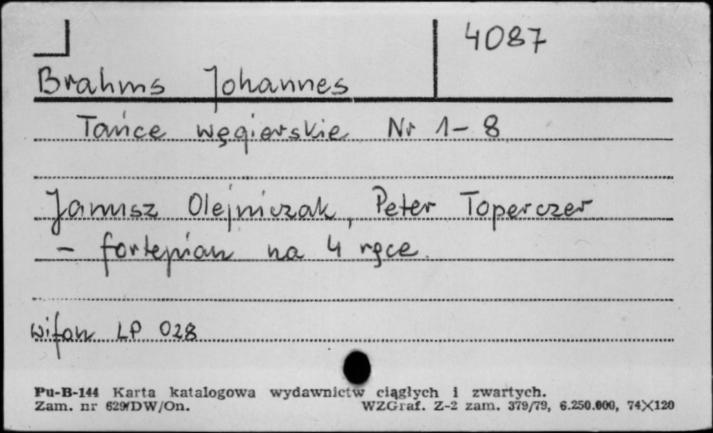 4087
Brahms Johannes
Tańce węgierskie Nr 1-8
Janusz Olejniczak, Peter Toperczer
- fortepian na 4 ręce.
Wifon LP 028
Pu-B-144 Karta katalogowa wydawnictw ciągłych i zwartych.
Zam. nr 629/DW/On. WZGraf. Z-2 zam. 379/79, 6.250.000, 74×120